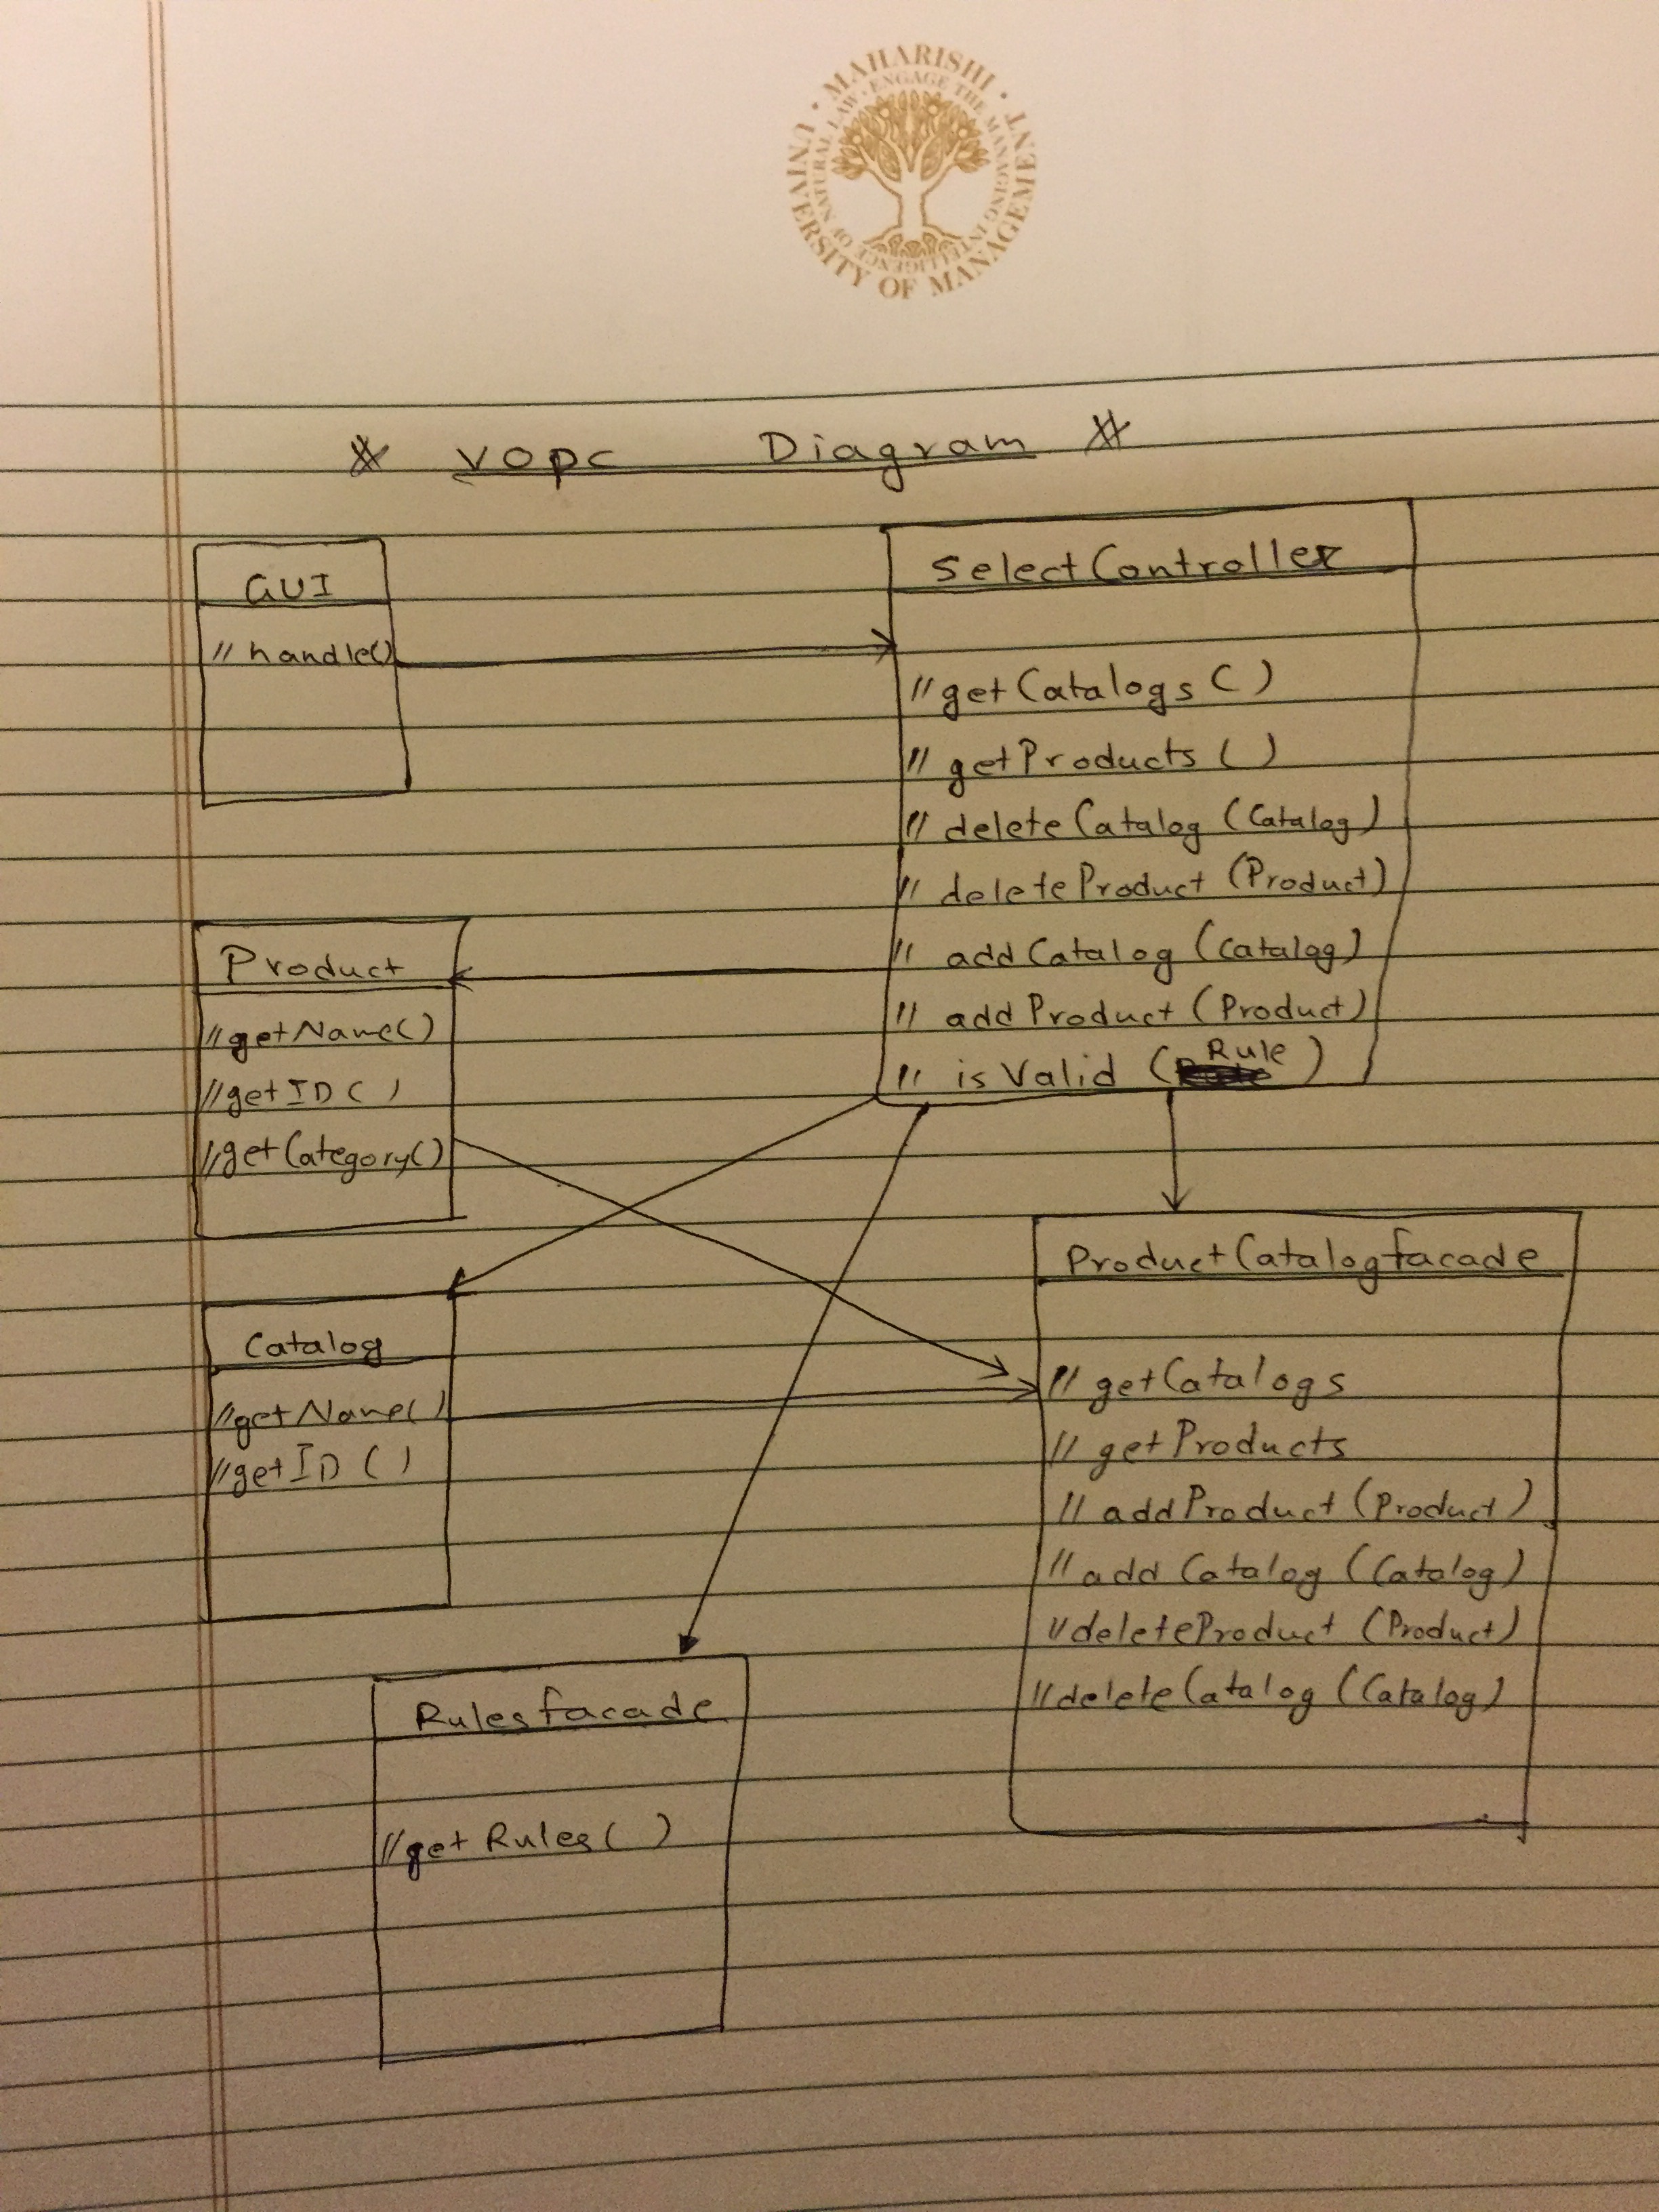 MAHARISHI UNIVERSITY OF MANAGEMENT
ENGAGE THE MANAGING INTELLIGENCE OF NATURAL LAW
VOPC Diagram
GUI
// handle()
SelectController
// getCatalogs ( )
// getProducts ( )
// deleteCatalog (Catalog)
// deleteProduct (Product)
// addCatalog (Catalog)
// addProduct (Product)
// isValid (Rule)
Product
// getName()
// getID ( )
// getCategory()
Catalog
// getName()
// getID ( )
ProductCatalogfacade
// getCatalogs
// getProducts
// addProduct (Product)
// addCatalog (Catalog)
// deleteProduct (Product)
// deleteCatalog (Catalog)
Rulesfacade
// getRules ( )